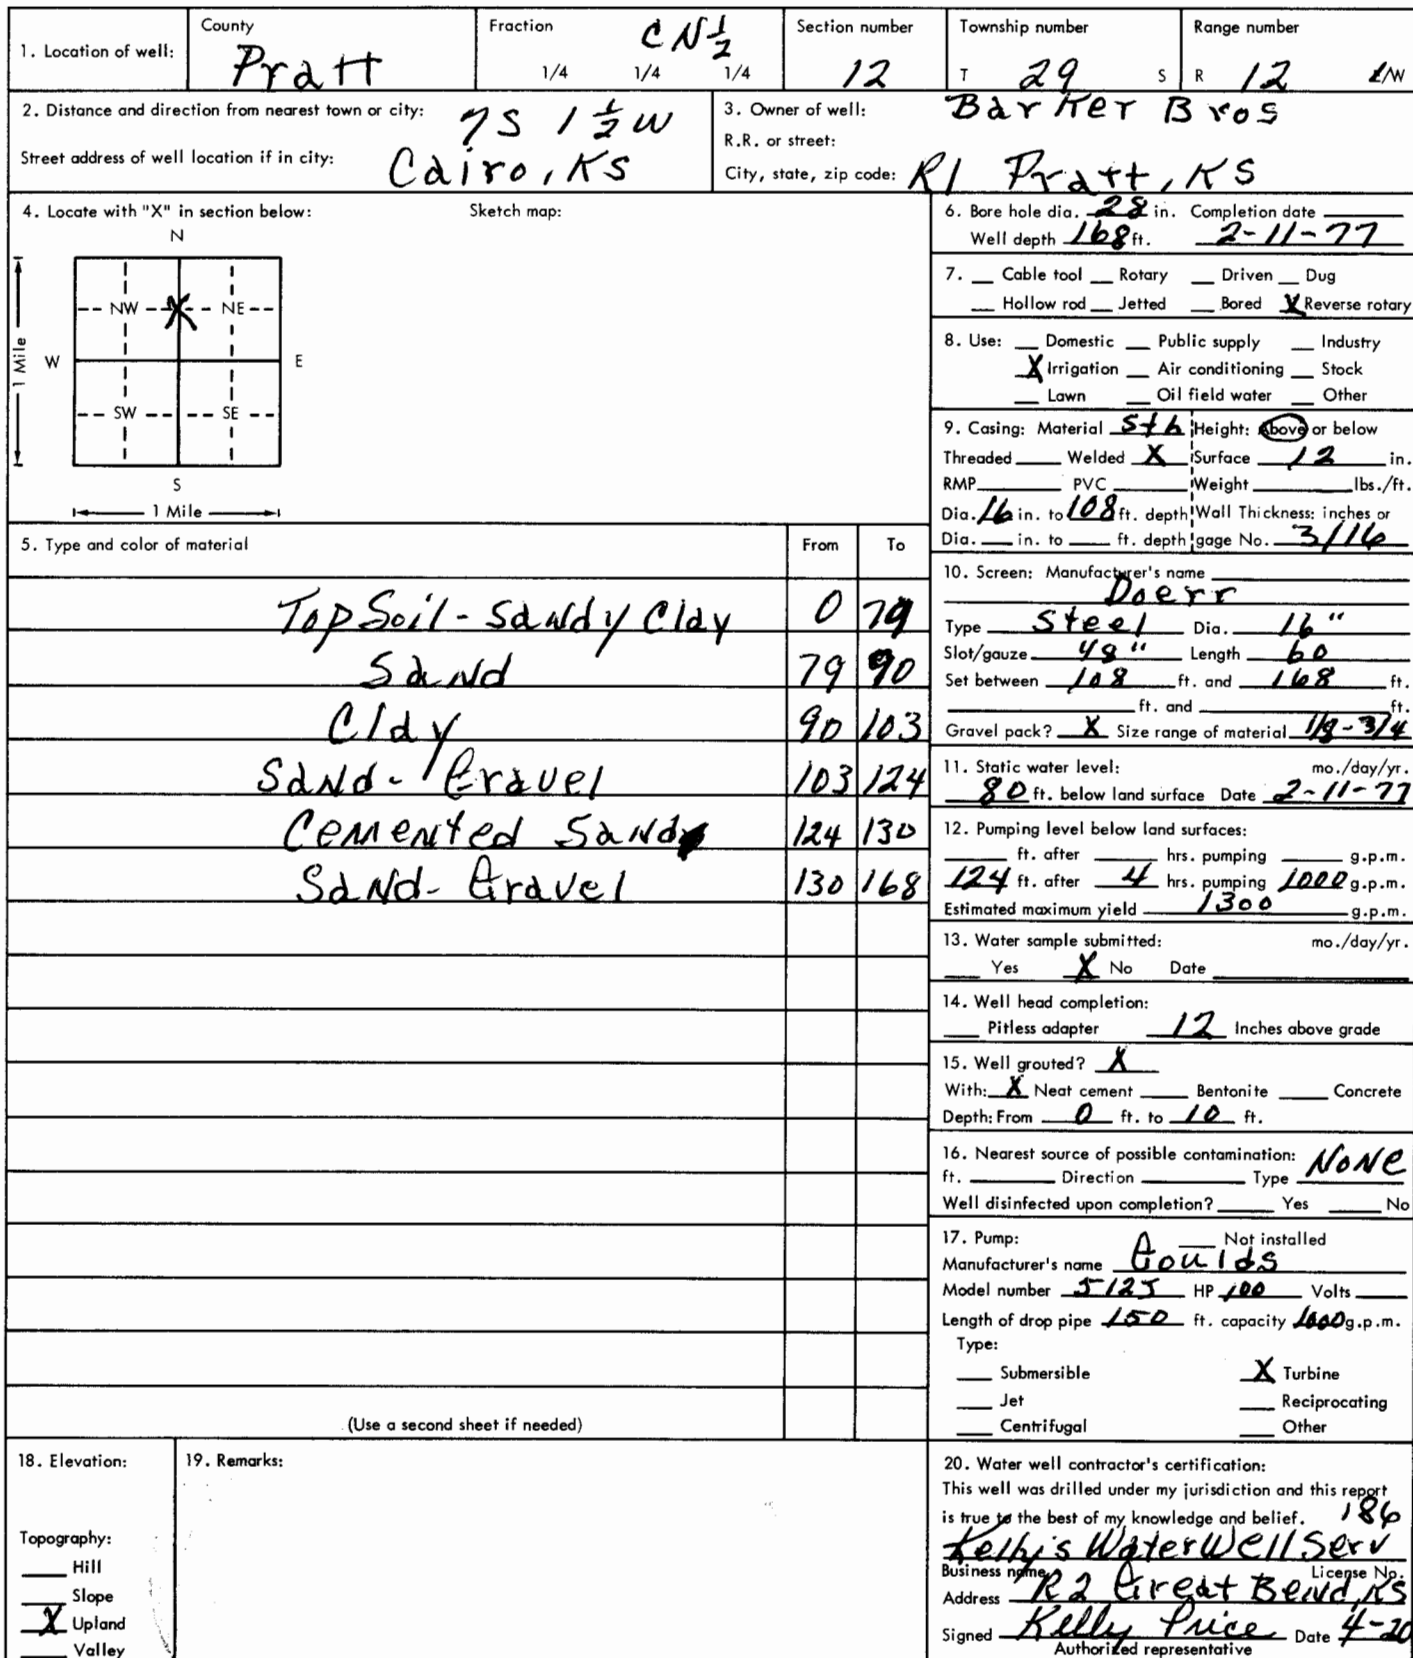 1. Location of well: County Pratt Fraction C N 1/2 1/4 1/4 1/4 Section number 12 Township number T 29 S Range number R 12 E/W
2. Distance and direction from nearest town or city: 7S 1 1/2 W
Street address of well location if in city: Cairo, KS
3. Owner of well: Barker Bros
R.R. or street:
City, state, zip code: R1 Pratt, KS
4. Locate with "X" in section below: Sketch map:
N
NW X NE
W E
1 Mile
SW SE
S
1 Mile
5. Type and color of material From To
Top Soil - Sandy Clay 0 79
Sand 79 90
Clay 90 103
Sand - Gravel 103 124
Cemented Sand 124 130
Sand - Gravel 130 168
(Use a second sheet if needed)
6. Bore hole dia. 28 in. Completion date
Well depth 168 ft. 2-11-77
7. Cable tool Rotary Driven Dug
Hollow rod Jetted Bored X Reverse rotary
8. Use: Domestic Public supply Industry
X Irrigation Air conditioning Stock
Lawn Oil field water Other
9. Casing: Material Height: Above or below
Threaded Welded X Surface 12 in.
RMP PVC Weight lbs./ft.
Dia. 16 in. to 108 ft. depth Wall Thickness: inches or
Dia. in. to ft. depth gage No. 3/16
10. Screen: Manufacturer's name
Doerr
Type Steel Dia. 16"
Slot/gauze 48" Length 60
Set between 108 ft. and 168 ft.
ft. and ft.
Gravel pack? X Size range of material 1/8-3/4
11. Static water level: mo./day/yr.
80 ft. below land surface Date 2-11-77
12. Pumping level below land surfaces:
ft. after hrs. pumping g.p.m.
124 ft. after 4 hrs. pumping 1000 g.p.m.
Estimated maximum yield 1300 g.p.m.
13. Water sample submitted: mo./day/yr.
Yes X No Date
14. Well head completion:
Pitless adapter 12 Inches above grade
15. Well grouted? X
With: X Neat cement Bentonite Concrete
Depth: From 0 ft. to 10 ft.
16. Nearest source of possible contamination: NONE
ft. Direction Type
Well disinfected upon completion? Yes No
17. Pump: Not installed
Manufacturer's name Goulds
Model number 5125 HP 100 Volts
Length of drop pipe 150 ft. capacity 1000 g.p.m.
Type:
Submersible X Turbine
Jet Reciprocating
Centrifugal Other
18. Elevation:
Topography:
Hill
Slope
X Upland
Valley
19. Remarks:
20. Water well contractor's certification:
This well was drilled under my jurisdiction and this report
is true to the best of my knowledge and belief. 186
Kelly's Water Well Serv
Business name License No.
Address R2 Great Bend, KS
Signed Kelly Price Date 4-20
Authorized representative